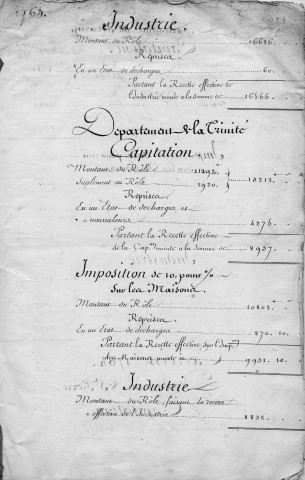 1764.
Industrie.
Montant du Rôle 16626.
Reprises
En un Etat de decharges 60.
Partant la Recette effective de
l'Industrie monte a la somme de 16566.
Département de la Trinité
Capitation
Montant du Rôle 11292.
Suplement au Rôle 1920. 13212.
Reprises
En un Etat de decharges et
nonvaleurs 4276.
Partant la Recette effective
de la Cap.on monte a la somme de 8937.
Imposition de 10. pour %
Sur les Maisons
Montant du Rôle 10802.
Reprises
En un Etat de decharges 870. 10.
Partant la Recette effective de l'Imp.on
des Maisons monte a 9931. 10.
Industrie
Montant du Rôle faisant la recette
effective de l'Industrie 8232.